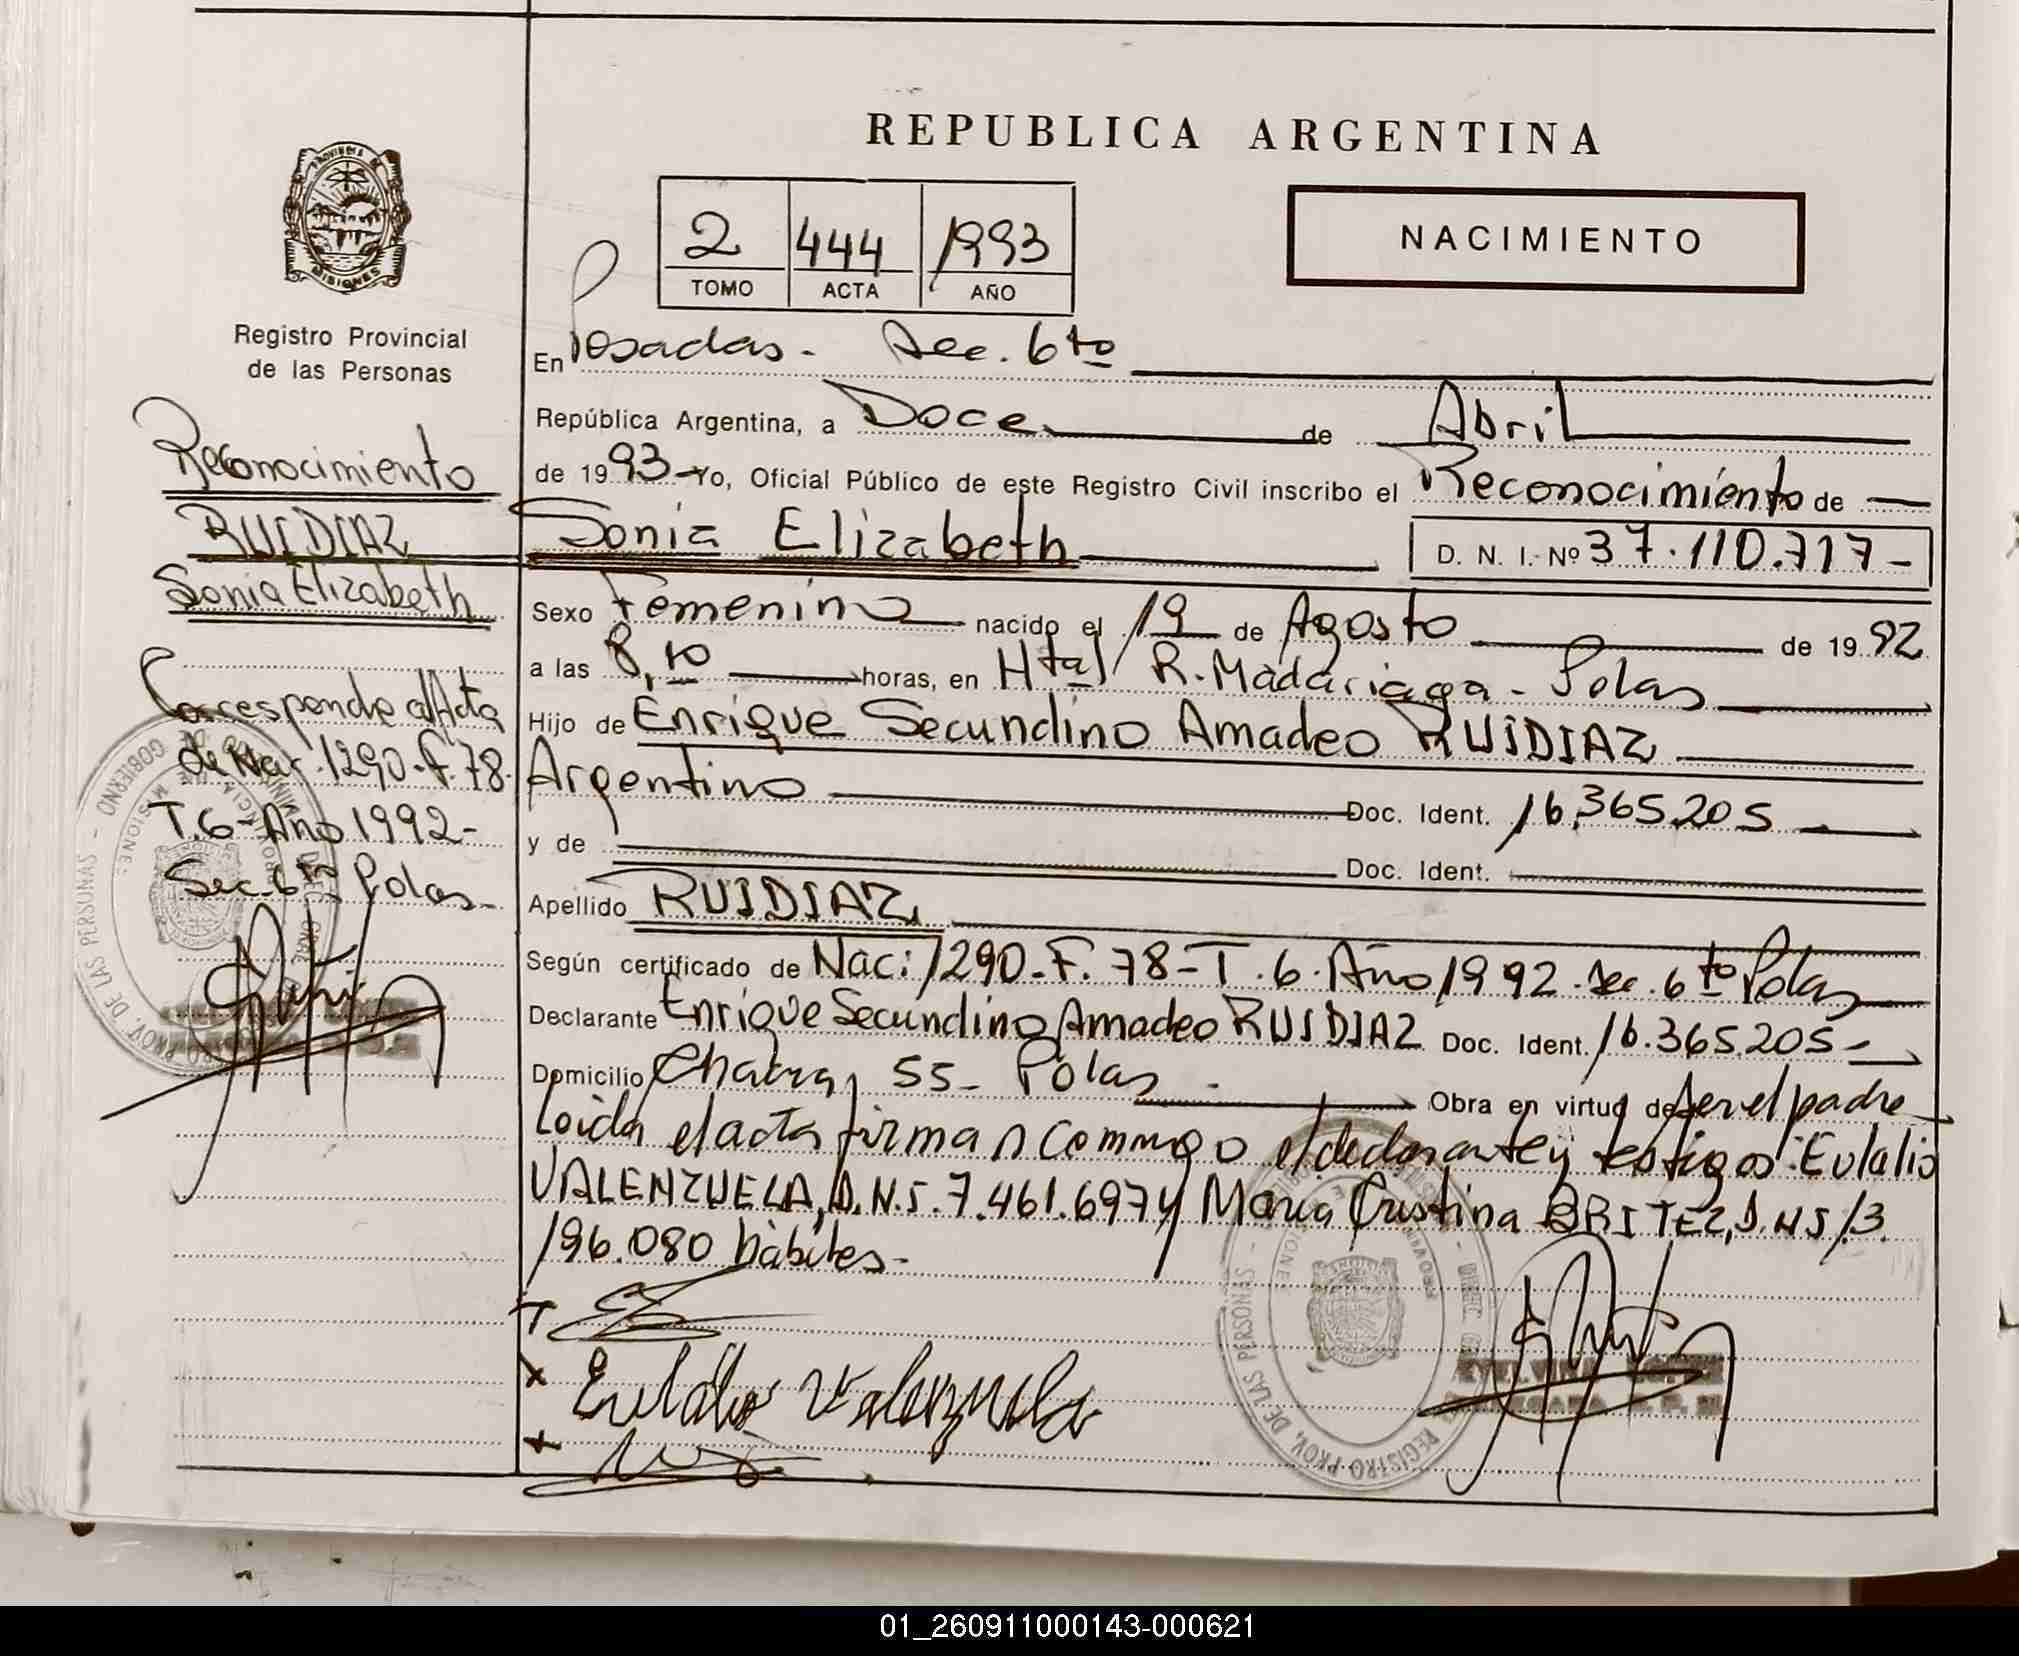 REPUBLICA ARGENTINA
PROVINCIA DE
MISIONES
2 444 1993
TOMO ACTA AÑO
NACIMIENTO
Registro Provincial
de las Personas
Reconocimiento
RUIDIAZ
Sonia Elizabeth
Corresponde al Acta
de Nac. 1290-F.78-
T.6-Año 1992-
Sec. 6ta Pdas.-
En Posadas - Sec. 6ta
República Argentina, a Doce de Abril
de 1993 - Yo, Oficial Público de este Registro Civil inscribo el Reconocimiento de
Sonia Elizabeth D. N. I. Nº 37.110.717-
Sexo Femenino nacido el 19 de Agosto de 1992
a las 8,10 horas, en Htal R. Madariaga - Pdas
Hijo de Enrique Secundino Amadeo RUIDIAZ
Argentino Doc. Ident. 16.365.205
y de Doc. Ident.
Apellido RUIDIAZ
Según certificado de Nac: 1290-F.78-T.6-Año 1992-Sec. 6ta Pdas
Declarante Enrique Secundino Amadeo RUIDIAZ Doc. Ident. 16.365.205-
Domicilio Chacra 55- Pdas Obra en virtud de Ser el padre
Leída el acta firman conmigo el declarante y testigos: Eulalio
VALENZUELA, D.N.I. 7.461.697 y María Cristina BRITEZ, D.N.I 13.
196.080 hábiles.-
Eulalio Valenzuela
REGISTRO PROV. DE LAS PERSONAS
01_260911000143-000621